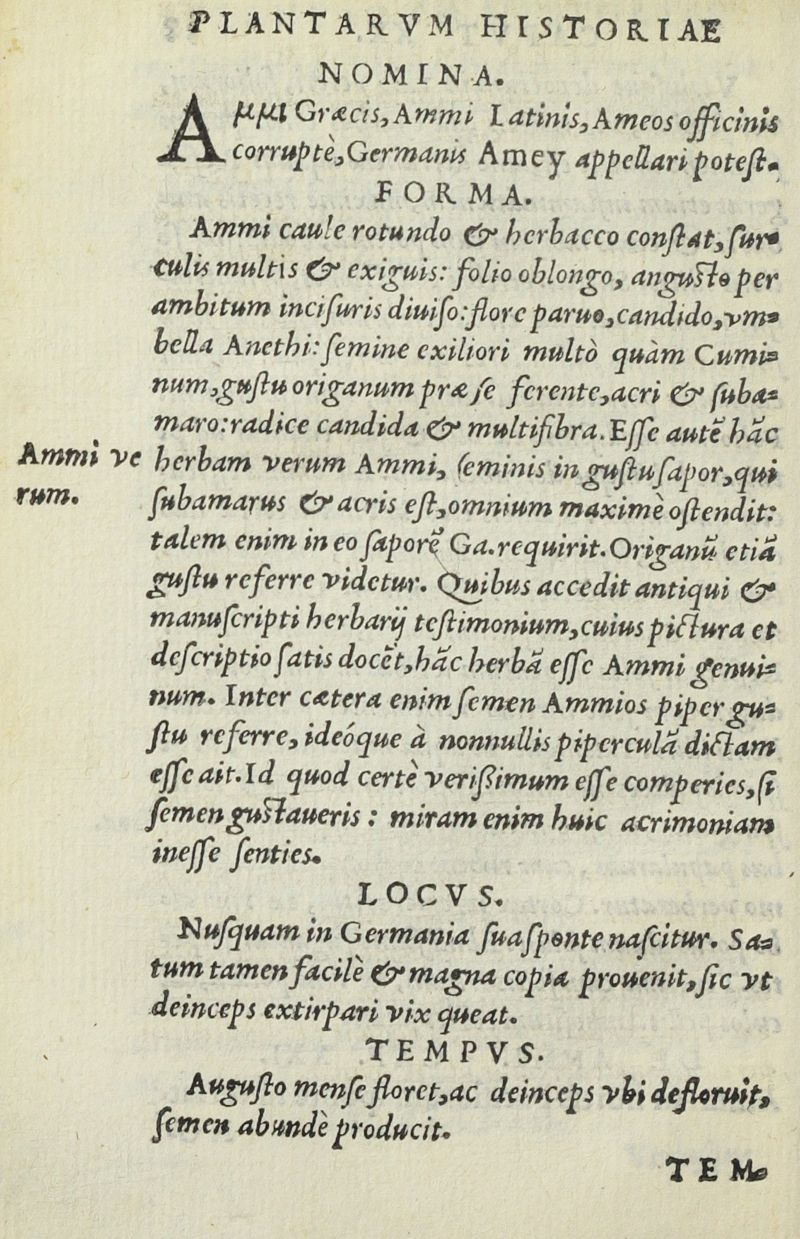 PLANTARVM HISTORIAE
NOMINA.
Αμμι Græcis, Ammi Latinis, Ameos officinis
corruptè, Germanis Amey appellari poteſt.
FORMA.
Ammi caule rotundo & herbaceo conſtat, ſur-
culis multis & exiguis: folio oblongo, anguſto per
ambitum inciſuris diuiſo: flore paruo, candido, vm-
bella Anethi: ſemine exiliori multò quàm Cumi-
num, guſtu origanum præ ſe ferente, acri & ſuba-
maro: radice candida & multifibra. Eſſe autē hāc
Ammi ve
rum.
herbam verum Ammi, ſeminis in guſtu ſapor, qui
ſubamarus & acris eſt, omnium maximè oſtendit:
talem enim in eo ſaporē Ga. requirit. Origanū etiā
guſtu referre videtur. Quibus accedit antiqui &
manuſcripti herbarij teſtimonium, cuius pictura et
deſcriptio ſatis docēt, hāc herbā eſſe Ammi genui-
num. Inter cætera enim ſemen Ammios piper gu-
ſtu referre, ideóque à nonnullis piperculā dictam
eſſe ait. Id quod certè verißimum eſſe comperies, ſi
ſemen guſtaueris: miram enim huic acrimoniam
ineſſe ſenties.
LOCVS.
Nuſquam in Germania ſua ſponte naſcitur. Sa-
tum tamen facilè & magna copia prouenit, ſic vt
deinceps extirpari vix queat.
TEMPVS.
Auguſto menſe floret, ac deinceps vbi defloruit,
ſemen abundè producit.
TEM-